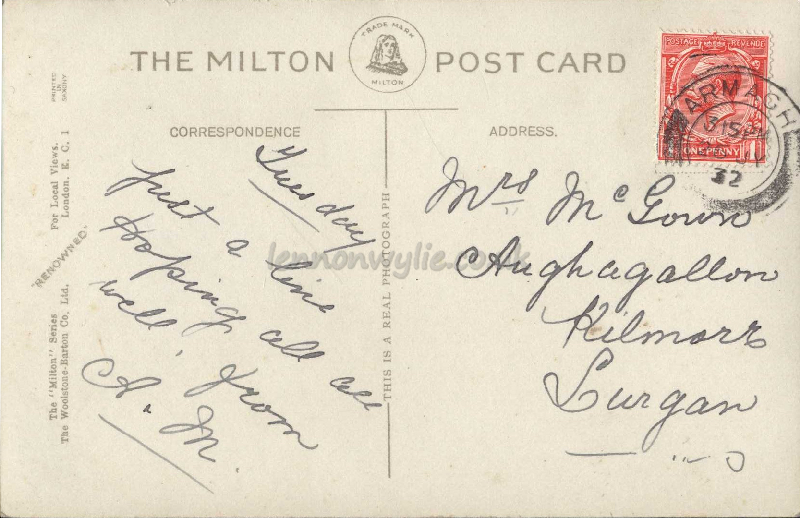 THE MILTON POST CARD
TRADE MARK
MILTON
CORRESPONDENCE
ADDRESS.
PRINTED
IN
SAXONY
The "Milton" Series "RENOWNED." For Local Views.
The Woolstone-Barton Co. Ltd. London. E. C. 1
THIS IS A REAL PHOTOGRAPH
POSTAGE REVENUE
ONE PENNY
ARMAGH
3 15 PM
32
Tuesday
Just a line
Hoping all are
well, from
A. M.
Mrs McGown
Aughagallon
Kilmore
Lurgan
lennonwylie.co.uk